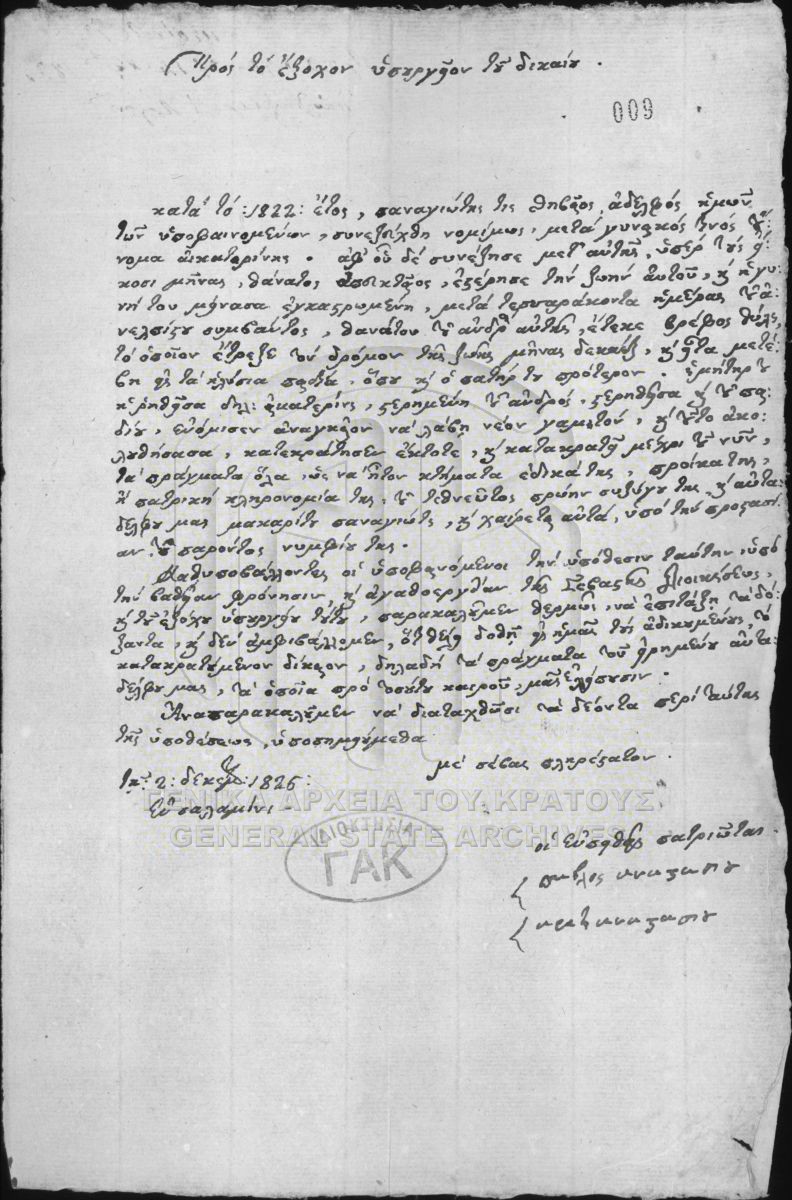 Πρός τό ἔξοχον ὑπουργεῖον τοῦ δικαίου .
009
κατά τό :1822: ἔτος , παναγιώτης τις θηβαῖος , ἀδελφός ἡμῶν
τῶν ὑποφαινομένων , συνεζεύχθη νομίμως , μετά γυναικός τινός τοὔ-
νομα αἰκατερίνης . ἀφ' οὗ δέ συνέζησε μετ' αὐτῆς , ὑπέρ τούς εἴ-
κοσι μῆνας , θάνατος , ἐξέρησε τήν ζωήν αὐτοῦ , καί ἡ γυ-
νή του μήνασα ἐγκαστρωμένη , μετά τεσσαράκοντα ἡμέρας τοῦ ἀ-
νελπίστου συμβάντος , θανάτου τοῦ ἀνδρός αὐτῆς , ἔτεκε βρέφος θῆλυ ,
τό ὁποῖον ἔτρεξε τόν δρόμον τῆς ζωῆς μῆνας δεκαέξ , καί εἶτα μετέ-
βη εἰς τά ἠλύσια πεδία , ὅπου καί ὁ πατήρ του πρότερον . ἡ μήτηρ του
ἡ ῥηθεῖσα δηλ: αἰκατερίνη , ξερημένη τοῦ ἀνδρός , ξερηθεῖσα καί τοῦ παι-
δίου , ἐνόμισεν ἀναγκαῖον νά λάβῃ νέον γαμβρόν , καί τοῦτο ἀκο-
λουθήσασα , κατεκράτησεν ἔκτοτε , καί κατακρατεῖ μέχρι τοῦ νῦν ,
τά πράγματα ὅλα , ὡς νά ἦτον κτήματα ἐδικά της , προίκα της ,
ἤ πατρική κληρονομία της , τοῦ τεθνεῶτος πρώην συζύγου της , καί αὐτα-
δέλφου μας μακαρίτου παναγιώτου , καί χαίρεται αὐτά , ὑπό τήν προστασί-
αν τοῦ παρόντος νυμφίου της .
Καθυποβάλλοντες οἱ ὑποφαινόμενοι τήν ὑπόθεσιν ταύτην , ὑπό
τήν βαθεῖαν φρόνησιν , καί ἀγαθοεργίαν τῆς Σεβαστῆς Διοικήσεως ,
καί τοῦ ἐξόχου ὑπουργείου τούτου , παρακαλοῦμεν θερμῶς , νά ἐπιτάξῃ τά δό-
ξαντα , καί δέν ἀμφιβάλλομεν , ὅτι θέλει δοθῇ εἰς ἡμᾶς τούς ἀδικουμένους , τό
κατακρατούμενον δίκαιον , δηλαδή τά πράγματα τοῦ εἰρημένου αὐτα-
δέλφου μας , τά ὁποῖα πρό τοσούτου καιροῦ , μᾶς ἐλήστευσιν .
Ἀναπαρακαλοῦμεν νά διαταχθῶσι τά δέοντα περί ταύτης
τῆς ὑποθέσεως , ὑποσημειούμεθα
μέ σέβας πληρέστατον .
Τῇ: 2: δεκεμβρ: 1825:
Ἐν σαλαμίνι -
οἱ εὐπειθεῖς πατριῶται .
παβλος αναστασιου
αναστασιου
ΓΕΝΙΚΑ ΑΡΧΕΙΑ ΤΟΥ ΚΡΑΤΟΥΣ
GENERAL STATE ARCHIVES
ΙΔΙΟΚΤΗΣΙΑ
ΓΑΚ